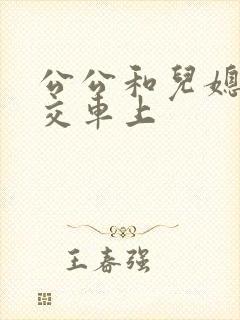 公公和兒媳
交車上
王春强